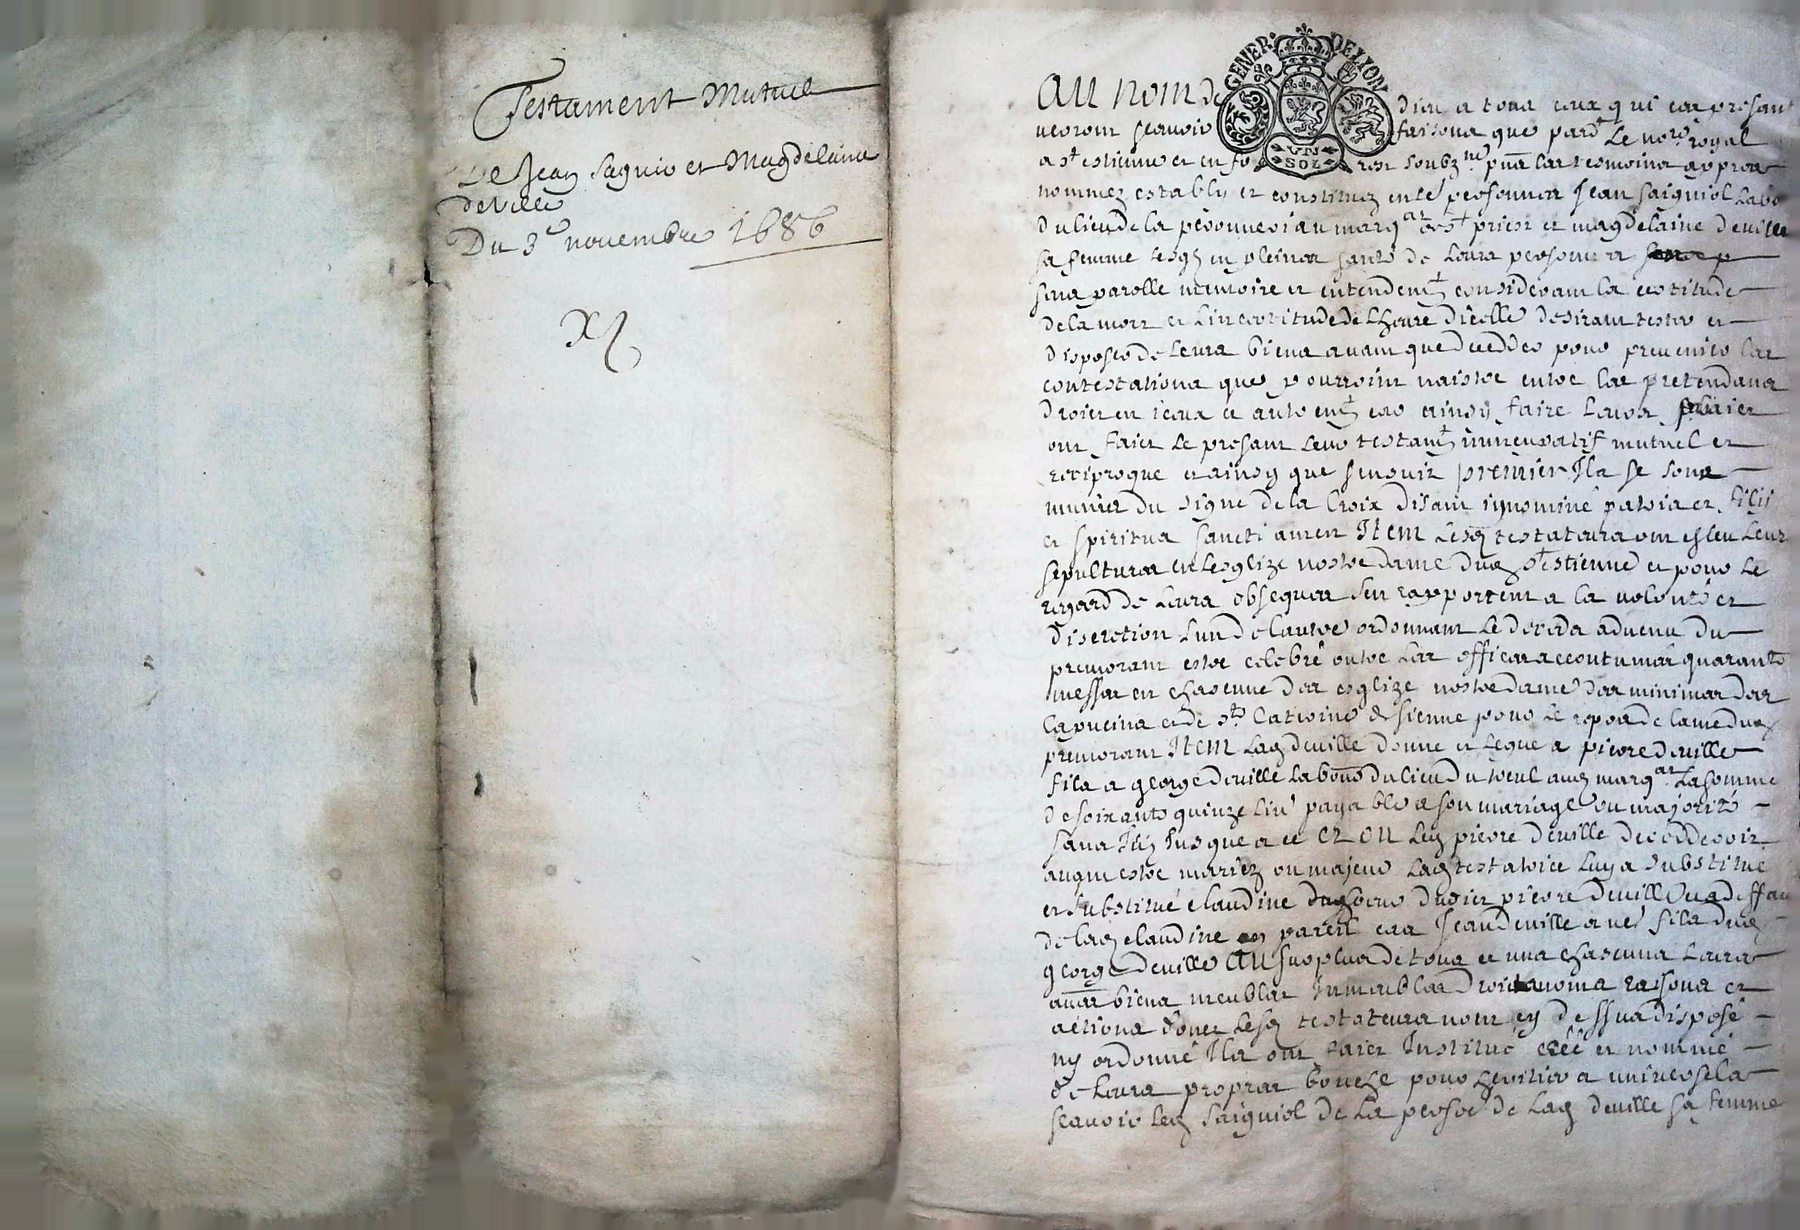 Testament Mutuel
De Jean Sagnio et Magdelaine
deville
Du 3e novembre 1686
GENER. DE LYON
VN
SOL
AU nom de Dieu a tous ceux qui ces presant
verront scavoir faisons que pard.t Le nore royal
a st estienne et en fo rest soubz.ne p̄nt les tesmoins apres
nommez establis et constituez en le.s personnes Jean Saignol Labo
Du lieu de la peronnery au marq.at de s.t priest et magdelaine deville
sa femme lesq. en pleines santé de Leurs personnes
sens parolle memoire et entendem.t considerant la certitude
de la mort et Lincertitude de Lheure dicelle desirant tester et
disposer de Leurs biens avant que decedder pour prevenir les
contestations que pourroint naistre entre les pretendans
droict en iceux et autrem.t ont faict
ont faict Le presant leur testam.t nuncupatif mutuel et
reciproque et ainsy que senouit premier Ils se sont
munier du signe de la Croix disant in nomine patris et filij
et spiritus sancti amen Item Lesd. testateurs ont esleu Leur
sepultures en Lesglize nostre dame dud. st estienne et pour Le
regard de Leurs obseques sen rapportent a la volonté et
discretion Lun de lautre ordonnant Le deceds advenu du
premorant estre celebré outre Les offices accoutumés quarante
messes en chasenne des esglize nostre dame des minimes des
Capucins et de ste Caterine de sienne pour Le repos de lame dud.
premorant Item Lad. deville donne et Legue a pierre deville
fils a george deville labour. du lieu du treul aud. marq.at La somme
de soixante quinze liv. payable a son mariage ou majorité
sans Jusque a ce ET OU Led. pierre deville deceddevoit
avant estre mariez ou majeur Lad. testatrice Luy a substitué
et substitué claudine deville sa soeur dudict pierre deville Ou a deffaut
de lad. claudine en pareil cas Jean deville aussi fils dud.
george deville AU surplus de tous et uns chascuns Leurs
autres biens meubles Immeubles droicts noms raisons et
actions donct Lesd. testateurs nont cy dessus disposé
ny ordonné Ils ont faict Institué créé et nommé
de Leurs propres bouche pour heritiers universels
scavoir Led. Saignol de La persoe de Lad. deville sa femme